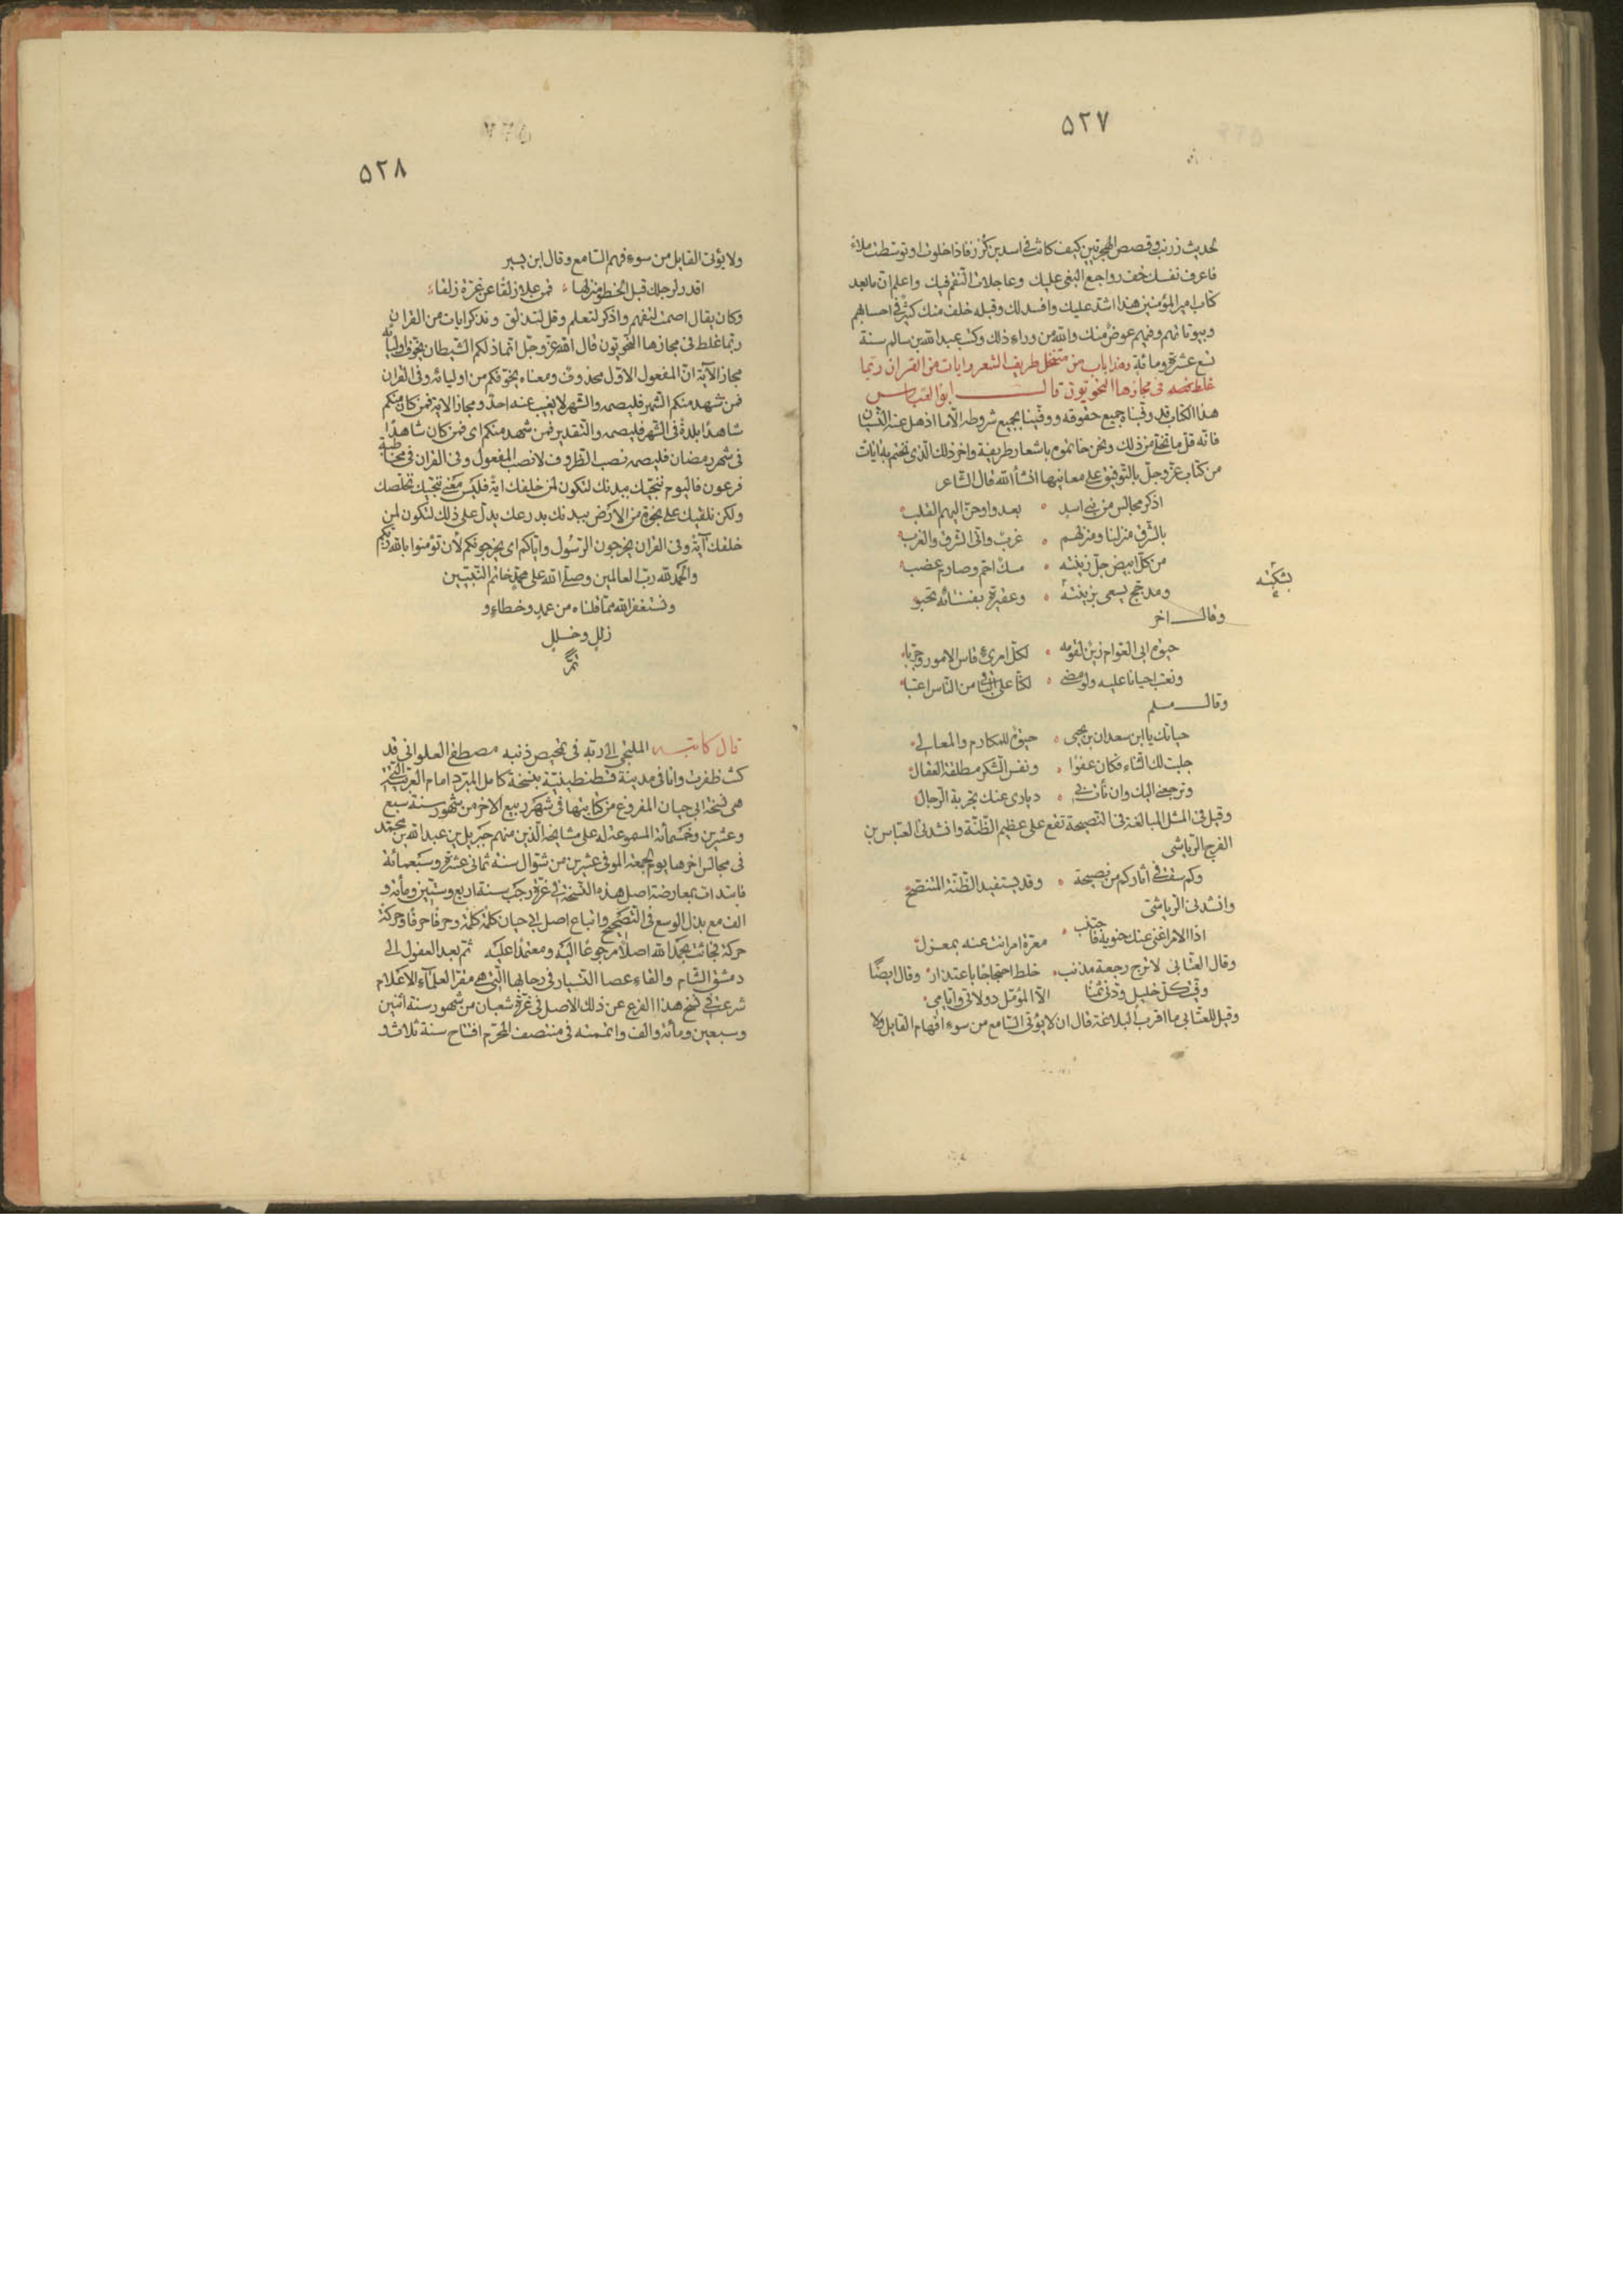 ٥٢٧
لحديث زرنب وقصص الهجريين كيف كانت في اسد بن كرز فاذا خلوت او توسطت ملاءً
فاعرف نفسك وخف رواجع البغي عليك وعاجلات النقم فيك واعلم ان ما بعد
كتاب امير المؤمنين هذا اشد عليك وافسد لك وقبله خلف منك كثير في احسابهم
وبيوتاتهم وفيهم عوض منك والله من وراء ذلك وكتب عبد الله بن سالم سنة
تسع عشرة ومائة وهذا باب من متنخل طريف الشعر وايات من القران ربما
غلط في مجازها النحويون قال ابو العباس
هذا الكتاب قد وفيناه جميع حقوقه ووفينا بجميع شروطه الا ما اذهل عنه النسيان
فانه قل ما يخلو من ذلك ونحن خاتموه باشعار طريفة واخر ذلك الذي نختم به ايات
من كتاب الله عز وجل بالتوفيق على معانيها ان شاء الله قال الشاعر
اذكر مجالس من بني اسد بعدوا وحن اليهم القلب
بالشرق منزلنا ومنزلهم غرب واني الشرق والغرب
من كل ابيض جل زينته مسك احم وصارم عضب
ومدجج يسعى بزينته وعقيرة بفنائه تحبو
بشكته
وقال اخر
حيوة ابي العوام زين لقومه لكل امرئ قاس الامور وجربا
ونعتب احيانا عليه ولو مضى لكنا على الباقي من الناس اعتبا
وقال مسلم
حياتك يا ابن سعدان بن يحيى حيوة للمكارم والمعالي
جلبت لك الثناء فكان عفوا ونفس الشكر مطلقة العقال
وترجعني اليك وان نأت بي دياري عنك تجربة الرجال
وقيل في المثل المبالغة في النصيحة تقع على عظيم الظنة وانشدني العباس بن
الفرج الرياشي
وكم سقت في اثاركم من نصيحة وقد يستفيد الظنة المتنصح
وانشدني الرياشي
اذا الامر اغنى عنك حنويه فاجتنب معرة امر انت عنه بمعزل
وقال العتابي لا ترج رجعة مذنب خلط احتجاجا باعتذار وقال ايضًا
وفى كل خليل ودني ثمنا الا المؤمل دولاتي وايامي
وقيل للعتابي ما اقرب البلاغة قال ان لا يؤتى السامع من سوء افهام القايل ولا
٥٢٨
ولا يؤتى القايل من سوء فهم السامع وقال ابن يسير
اقدر لرجلك قبل الخطو منزلها فمن علا زلقا عن غرة زلقا
وكان يقال اصمت لتفهم واذكر لتعلم وقل لتذلق ونذكر ايات من القران
ربما غلط في مجازها النحويون قال الله عز وجل انما ذلكم الشيطان يخوف اولياءه
مجاز الآية ان المفعول الاول محذوف ومعناه يخوفكم من اوليائه وفي القران
فمن شهد منكم الشهر فليصمه والشهر لا يغيب عنه احد ومجاز الاية فمن كان منكم
شاهدًا بلدة في الشهر فليصمه والتقدير فمن شهد منكم اي فمن كان شاهدًا
في شهر رمضان فليصمه نصب الظروف لا نصب المفعول وفي القران في مخاطبة
فرعون فاليوم ننجيك ببدنك لتكون لمن خلفك اية فليس معنى ننجيك نخلصك
ولكن نلقيك على نجوة من الارض ببدنك بدرعك يدل على ذلك لتكون لمن
خلفك آية وفي القران يخرجون الرسول واياكم اي يخرجونكم لأن تؤمنوا بالله ربكم
والحمد لله رب العالمين وصلى الله على محمد خاتم النبيين
ونستغفر الله مما قلناه من عمد وخطاء و
زلل وخلل
تم
قال كاتبه الملتجي الى ربه في تمحيص ذنبه مصطفى العلواني قد
كنت ظفرت وانا في مدينة قسطنطينية بنسخة كامل المبرد امام العربية التي
هي نسخة ابي حيان المفروغ من كتابتها في شهر ربيع الاخر من شهور سنة سبع
وعشرين وخمسمائة المسموعة له على مشايخه الذين منهم جبريل بن عبد الله بن محمد
في مجالس اخرها يوم الجمعة الموفي عشرين من شوال سنة ثماني عشرة وسبعمائة
فابتدات بمعارضة اصل هذه النسخة في غرة رجب سنة اربع وستين ومائة و
الف مع بذل الوسع في التصحيح واتباع اصل ابي حيان كلمة كلمة وحرفا حرفا وحركة
حركة فجائت بحمد الله اصلا مرجوعًا اليه ومعتمدًا عليه ثم بعد القفول الى
دمشق الشام والقاء عصا التسيار في رحابها التي هي مقر العلماء الاعلام
شرعت في نسخ هذا الفرع عن ذلك الاصل في غرة شعبان من شهور سنة اثنين
وسبعين ومائة والف واتممته في منتصف المحرم افتتاح سنة ثلاث و